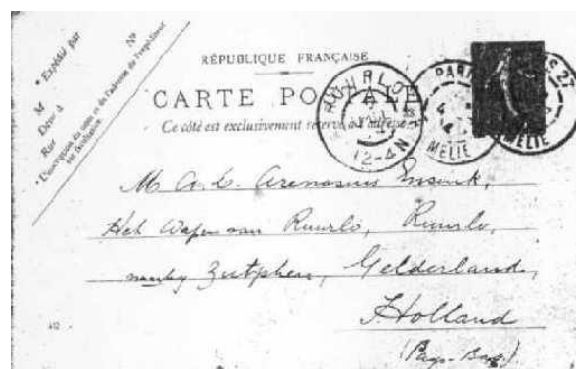 Nº
* Expédié par
M
Demt à
Rue
* L'inscription du nom et de l'adresse de l'expéditeur
est facultative.
RÉPUBLIQUE FRANÇAISE
CARTE POSTALE
Ce côté est exclusivement réservé à l'adresse
RUURLO
12-4N
PARIS 27
AMELIE
M A. L. Arenasius Ensink,
Het Wapen van Ruurlo, Ruurlo,
nearby Zutphen, Gelderland,
Holland
(Pays-Bas).